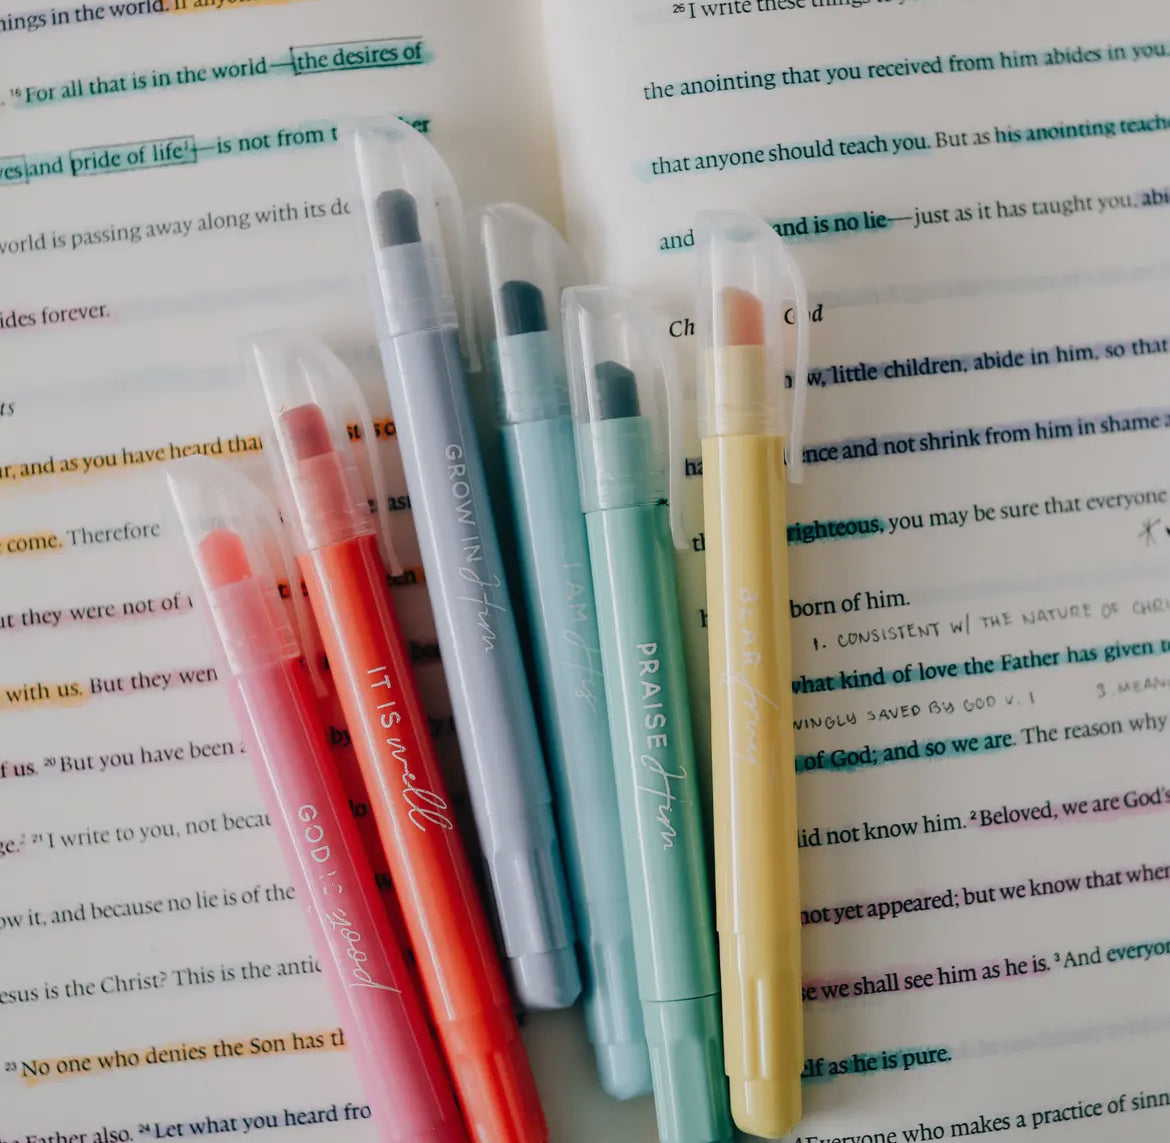 things in the world. If anyone
16 For all that is in the world—the desires of
eyes and pride of life—is not from
world is passing away along with its
abides forever.
and as you have heard that
come. Therefore
but they were not of
with us. But they
of us. 20 But you have been
21 I write to you, not
know it, and because no lie is of the
Jesus is the Christ? This is the
23 No one who denies the Son has
Father also. 24 Let what you heard
26 I write these things to
the anointing that you received from him abides in you,
that anyone should teach you. But as his anointing
and and is no lie—just as it has taught you,
little children, abide in him, so that
and not shrink from him in shame
righteous, you may be sure that everyone
born of him.
1. CONSISTENT W/ THE NATURE OF
what kind of love the Father has given
SAVED BY GOD V. 1 3
of God; and so we are. The reason why
did not know him. 2 Beloved, we are God's
not yet appeared; but we know that when
we shall see him as he is. 3 And
as he is pure.
Everyone who makes a practice of
GOD IS good
IT IS well
GROW IN Him
I AM His
PRAISE Him
BEAR fruit